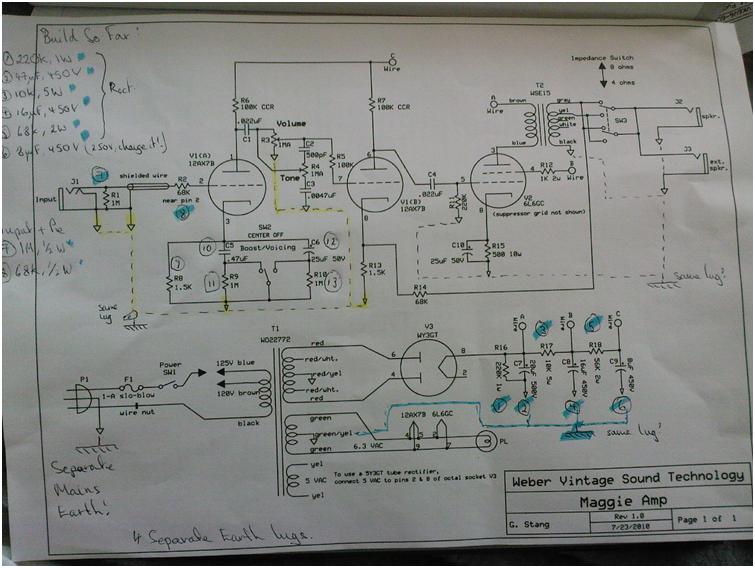 Build So Far!
① 220K, 1W
② 47µF, 450V
③ 10K, 5W
④ 16µF, 450V
⑤ 68K, 2W
⑥ 8µF, 450V (250V, change it!)
Rect.
Input + Pre
⑦ 1M, ½W
⑧ 68K, ½W
C
Wire
Impedance Switch
8 ohms
4 ohms
R6
100K CCR
R7
100K CCR
A
Wire
T2
WSE15
brown
blue
gray
yel
green
white
black
SW3
J2
spkr.
J3
ext.
spkr.
.022uF
C1
Volume
R3
1MA
C2
500pF
R4
1MA
Tone
C3
.0047uF
R5
100K
V1(A)
12AX7B
1
2
3
J1
Input
⑦
shielded wire
R1
1M
R2
68K
near pin 2
⑧
6
7
8
V1(B)
12AX7B
C4
.022uF
R11
220K
3
5
4
8
R12
1K 2w
B
Wire
V2
6L6GC
(suppressor grid not shown)
SW2
CENTER OFF
Boost/Voicing
⑨
R8
1.5K
⑩
C5
.47uF
⑪
R9
1M
C6
⑫
25uF 50V
R10
1M
⑬
R13
1.5K
R14
68K
C10
25uF 50V
R15
500 10w
same lug!
same
lug
T1
W022772
red
red/wht.
red/yel
red/wht.
red
V3
WY3GT
6
4
8
2
R16
220K
1w
A
wire
③
B
wire
⑤
C
wire
R17
10K 5w
R18
56K 2w
C7
20uF 500V
C8
16uF 450V
C9
8uF 450V
①
②
④
⑥
same lug!
P1
F1
1-A slo-blow
wire nut
Power
SW1
125V blue
120V brown
black
green
green/yel
green
6.3 VAC
12AX7B
6L6GC
4
5
9
2
7
PL
yel
5 VAC
yel
To use a 5Y3GT tube rectifier,
connect 5 VAC to pins 2 & 8 of octal socket V3
Separate
Mains
Earth!
4 Separate Earth lugs.
Weber Vintage Sound Technology
Maggie Amp
G. Stang
Rev 1.0
7/23/2010
Page 1 of 1